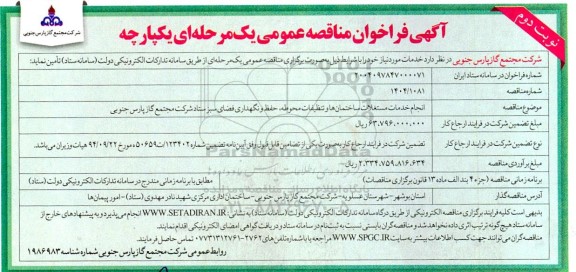 شرکت مجتمع گاز پارس جنوبی
نوبت دوم
آگهی فراخوان مناقصه عمومی یک مرحله‌ای یکپارچه
شرکت مجتمع گاز پارس جنوبی در نظر دارد خدمات مورد نیاز خود را با شرایط ذیل به صورت برگزاری مناقصه عمومی یک مرحله‌ای از طریق سامانه تدارکات الکترونیکی دولت (سامانه ستاد) تأمین نماید:
شماره فراخوان در سامانه ستاد ایران
شماره مناقصه ۱۴۰۴/۱۰۸۱
موضوع مناقصه انجام خدمات مستغلات ساختمان‌ها و تنظیفات محوطه، حفظ و نگهداری فضای سبز ستاد شرکت مجتمع گاز پارس جنوبی
مبلغ تضمین شرکت در فرایند ارجاع کار ۶۳,۷۹۶,۰۰۰,۰۰۰ ریال
نوع تضمین شرکت در فرایند ارجاع کار تضمین شرکت در فرایند ارجاع کار به صورت یکی از تضامین قابل قبول وفق آیین‌نامه تضمین ۱۲۳۴۰۲/ت۵۰۶۵۹ه مورخ ۹۴/۰۹/۲۲ هیات وزیران می‌باشد.
مبلغ برآوردی مناقصه ۲,۳۳۴,۷۵۹,۸۱۶,۶۳۴ ریال
برنامه زمانی مناقصه (جزء ۴ بند الف ماده ۱۳ قانون برگزاری مناقصات) مطابق با برنامه زمانی مندرج در سامانه تدارکات الکترونیکی دولت (ستاد)
آدرس مناقصه‌گذار استان بوشهر- شهرستان عسلویه- شرکت مجتمع گاز پارس جنوبی- ساختمان اداری مرکزی شهید نادر مهدوی (ستاد)- امور پیمان‌ها
بدیهی است کلیه فرایند برگزاری مناقصه الکترونیکی از طریق درگاه سامانه تدارکات الکترونیکی دولت (سامانه ستاد) به نشانی WWW.SETADIRAN.IR انجام می‌پذیرد و به پیشنهادهای خارج از
سامانه ستاد هیچ‌گونه ترتیب اثری داده نخواهد شد و مناقصه‌گران بایستی نسبت به ثبت‌نام در سامانه ستاد و دریافت گواهی امضای الکترونیکی اقدام نمایند.
مناقصه‌گران می‌توانند جهت کسب اطلاعات بیشتر به سایت WWW.SPGC.IR مراجعه یا با شماره تلفن‌های ۲۷۶۲-۰۷۷۳۱۳۱۲۷۶۱ تماس حاصل فرمایند.
روابط عمومی شرکت مجتمع گاز پارس جنوبی شماره شناسه ۱۹۸۶۹۸۳